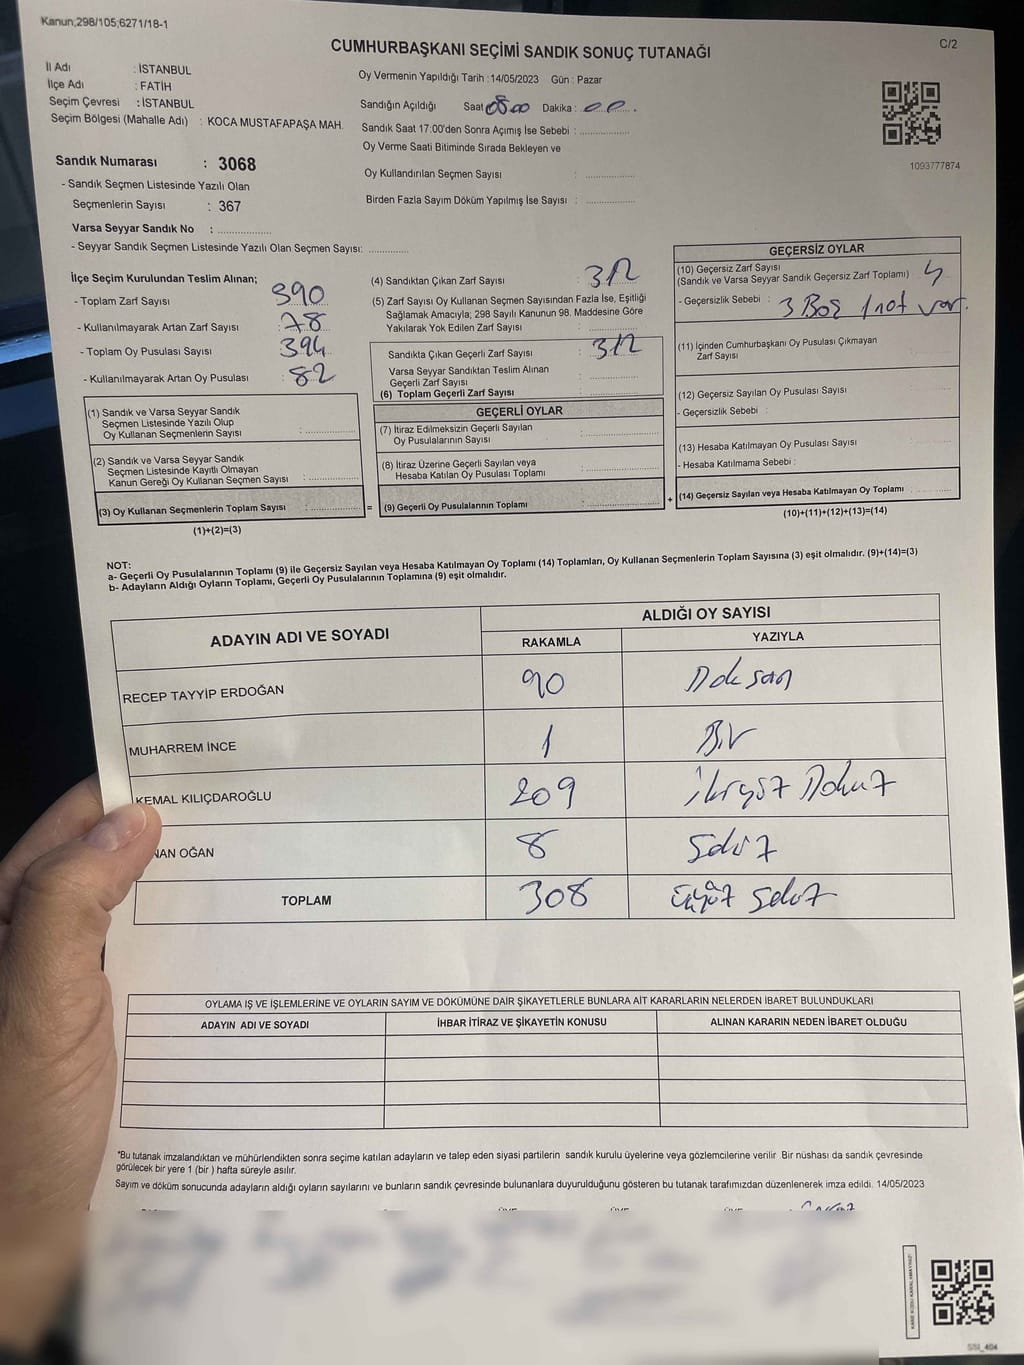 Kanun;298/105;6271/18-1
C/2
CUMHURBAŞKANI SEÇİMİ SANDIK SONUÇ TUTANAĞI
İl Adı : İSTANBUL
İlçe Adı : FATİH
Seçim Çevresi : İSTANBUL
Seçim Bölgesi (Mahalle Adı) : KOCA MUSTAFAPAŞA MAH.
Oy Vermenin Yapıldığı Tarih : 14/05/2023 Gün : Pazar
Sandığın Açıldığı Saat 08 00 Dakika : 00 .
Sandık Saat 17:00'den Sonra Açımış İse Sebebi : ..................
Oy Verme Saati Bitiminde Sırada Bekleyen ve
Oy Kullandırılan Seçmen Sayısı : ..................
Birden Fazla Sayım Döküm Yapılmış İse Sayısı : ..................
1093777874
Sandık Numarası : 3068
- Sandık Seçmen Listesinde Yazılı Olan
Seçmenlerin Sayısı : 367
Varsa Seyyar Sandık No : ..................
- Seyyar Sandık Seçmen Listesinde Yazılı Olan Seçmen Sayısı: .............
İlçe Seçim Kurulundan Teslim Alınan;
- Toplam Zarf Sayısı : 390
- Kullanılmayarak Artan Zarf Sayısı : 78
- Toplam Oy Pusulası Sayısı : 394
- Kullanılmayarak Artan Oy Pusulası : 82
(1) Sandık ve Varsa Seyyar Sandık
Seçmen Listesinde Yazılı Olup
Oy Kullanan Seçmenlerin Sayısı : ..................
(2) Sandık ve Varsa Seyyar Sandık
Seçmen Listesinde Kayıtlı Olmayan
Kanun Gereği Oy Kullanan Seçmen Sayısı : ..................
(3) Oy Kullanan Seçmenlerin Toplam Sayısı : ..................
(1)+(2)=(3)
(4) Sandıktan Çıkan Zarf Sayısı : 312
(5) Zarf Sayısı Oy Kullanan Seçmen Sayısından Fazla İse, Eşitliği
Sağlamak Amacıyla; 298 Sayılı Kanunun 98. Maddesine Göre
Yakılarak Yok Edilen Zarf Sayısı : ..................
Sandıkta Çıkan Geçerli Zarf Sayısı : 312
Varsa Seyyar Sandıktan Teslim Alınan
Geçerli Zarf Sayısı : ..................
(6) Toplam Geçerli Zarf Sayısı : ..................
=
GEÇERLİ OYLAR
(7) İtiraz Edilmeksizin Geçerli Sayılan
Oy Pusulalarının Sayısı : ..................
(8) İtiraz Üzerine Geçerli Sayılan veya
Hesaba Katılan Oy Pusulası Toplamı : ..................
(9) Geçerli Oy Pusulalarının Toplamı : ..................
+
GEÇERSİZ OYLAR
(10) Geçersiz Zarf Sayısı
(Sandık ve Varsa Seyyar Sandık Geçersiz Zarf Toplamı) 4
- Geçersizlik Sebebi : 3 Boş 1 not var.
(11) İçinden Cumhurbaşkanı Oy Pusulası Çıkmayan
Zarf Sayısı : ..................
(12) Geçersiz Sayılan Oy Pusulası Sayısı : ..................
- Geçersizlik Sebebi :
(13) Hesaba Katılmayan Oy Pusulası Sayısı : ..................
- Hesaba Katılmama Sebebi :
(14) Geçersiz Sayılan veya Hesaba Katılmayan Oy Toplamı : ..................
(10)+(11)+(12)+(13)=(14)
NOT:
a- Geçerli Oy Pusulalarının Toplamı (9) ile Geçersiz Sayılan veya Hesaba Katılmayan Oy Toplamı (14) Toplamları, Oy Kullanan Seçmenlerin Toplam Sayısına (3) eşit olmalıdır. (9)+(14)=(3)
b- Adayların Aldığı Oyların Toplamı, Geçerli Oy Pusulalarının Toplamına (9) eşit olmalıdır.
ADAYIN ADI VE SOYADI
ALDIĞI OY SAYISI
RAKAMLA YAZIYLA
RECEP TAYYİP ERDOĞAN 90 Doksan
MUHARREM İNCE 1 Bir
KEMAL KILIÇDAROĞLU 209 ikiyüz Dokuz
NAN OĞAN 8 Sekiz
TOPLAM 308 üçyüz Sekiz
OYLAMA İŞ VE İŞLEMLERİNE VE OYLARIN SAYIM VE DÖKÜMÜNE DAİR ŞİKAYETLERLE BUNLARA AİT KARARLARIN NELERDEN İBARET BULUNDUKLARI
ADAYIN ADI VE SOYADI İHBAR İTİRAZ VE ŞİKAYETİN KONUSU ALINAN KARARIN NEDEN İBARET OLDUĞU
*Bu tutanak imzalandıktan ve mühürlendikten sonra seçime katılan adayların ve talep eden siyasi partilerin sandık kurulu üyelerine veya gözlemcilerine verilir Bir nüshası da sandık çevresinde
görülecek bir yere 1 (bir) hafta süreyle asılır.
Sayım ve döküm sonucunda adayların aldığı oyların sayılarını ve bunların sandık çevresinde bulunanlara duyurulduğunu gösteren bu tutanak tarafımızdan düzenlenerek imza edildi. 14/05/2023
SSI_404